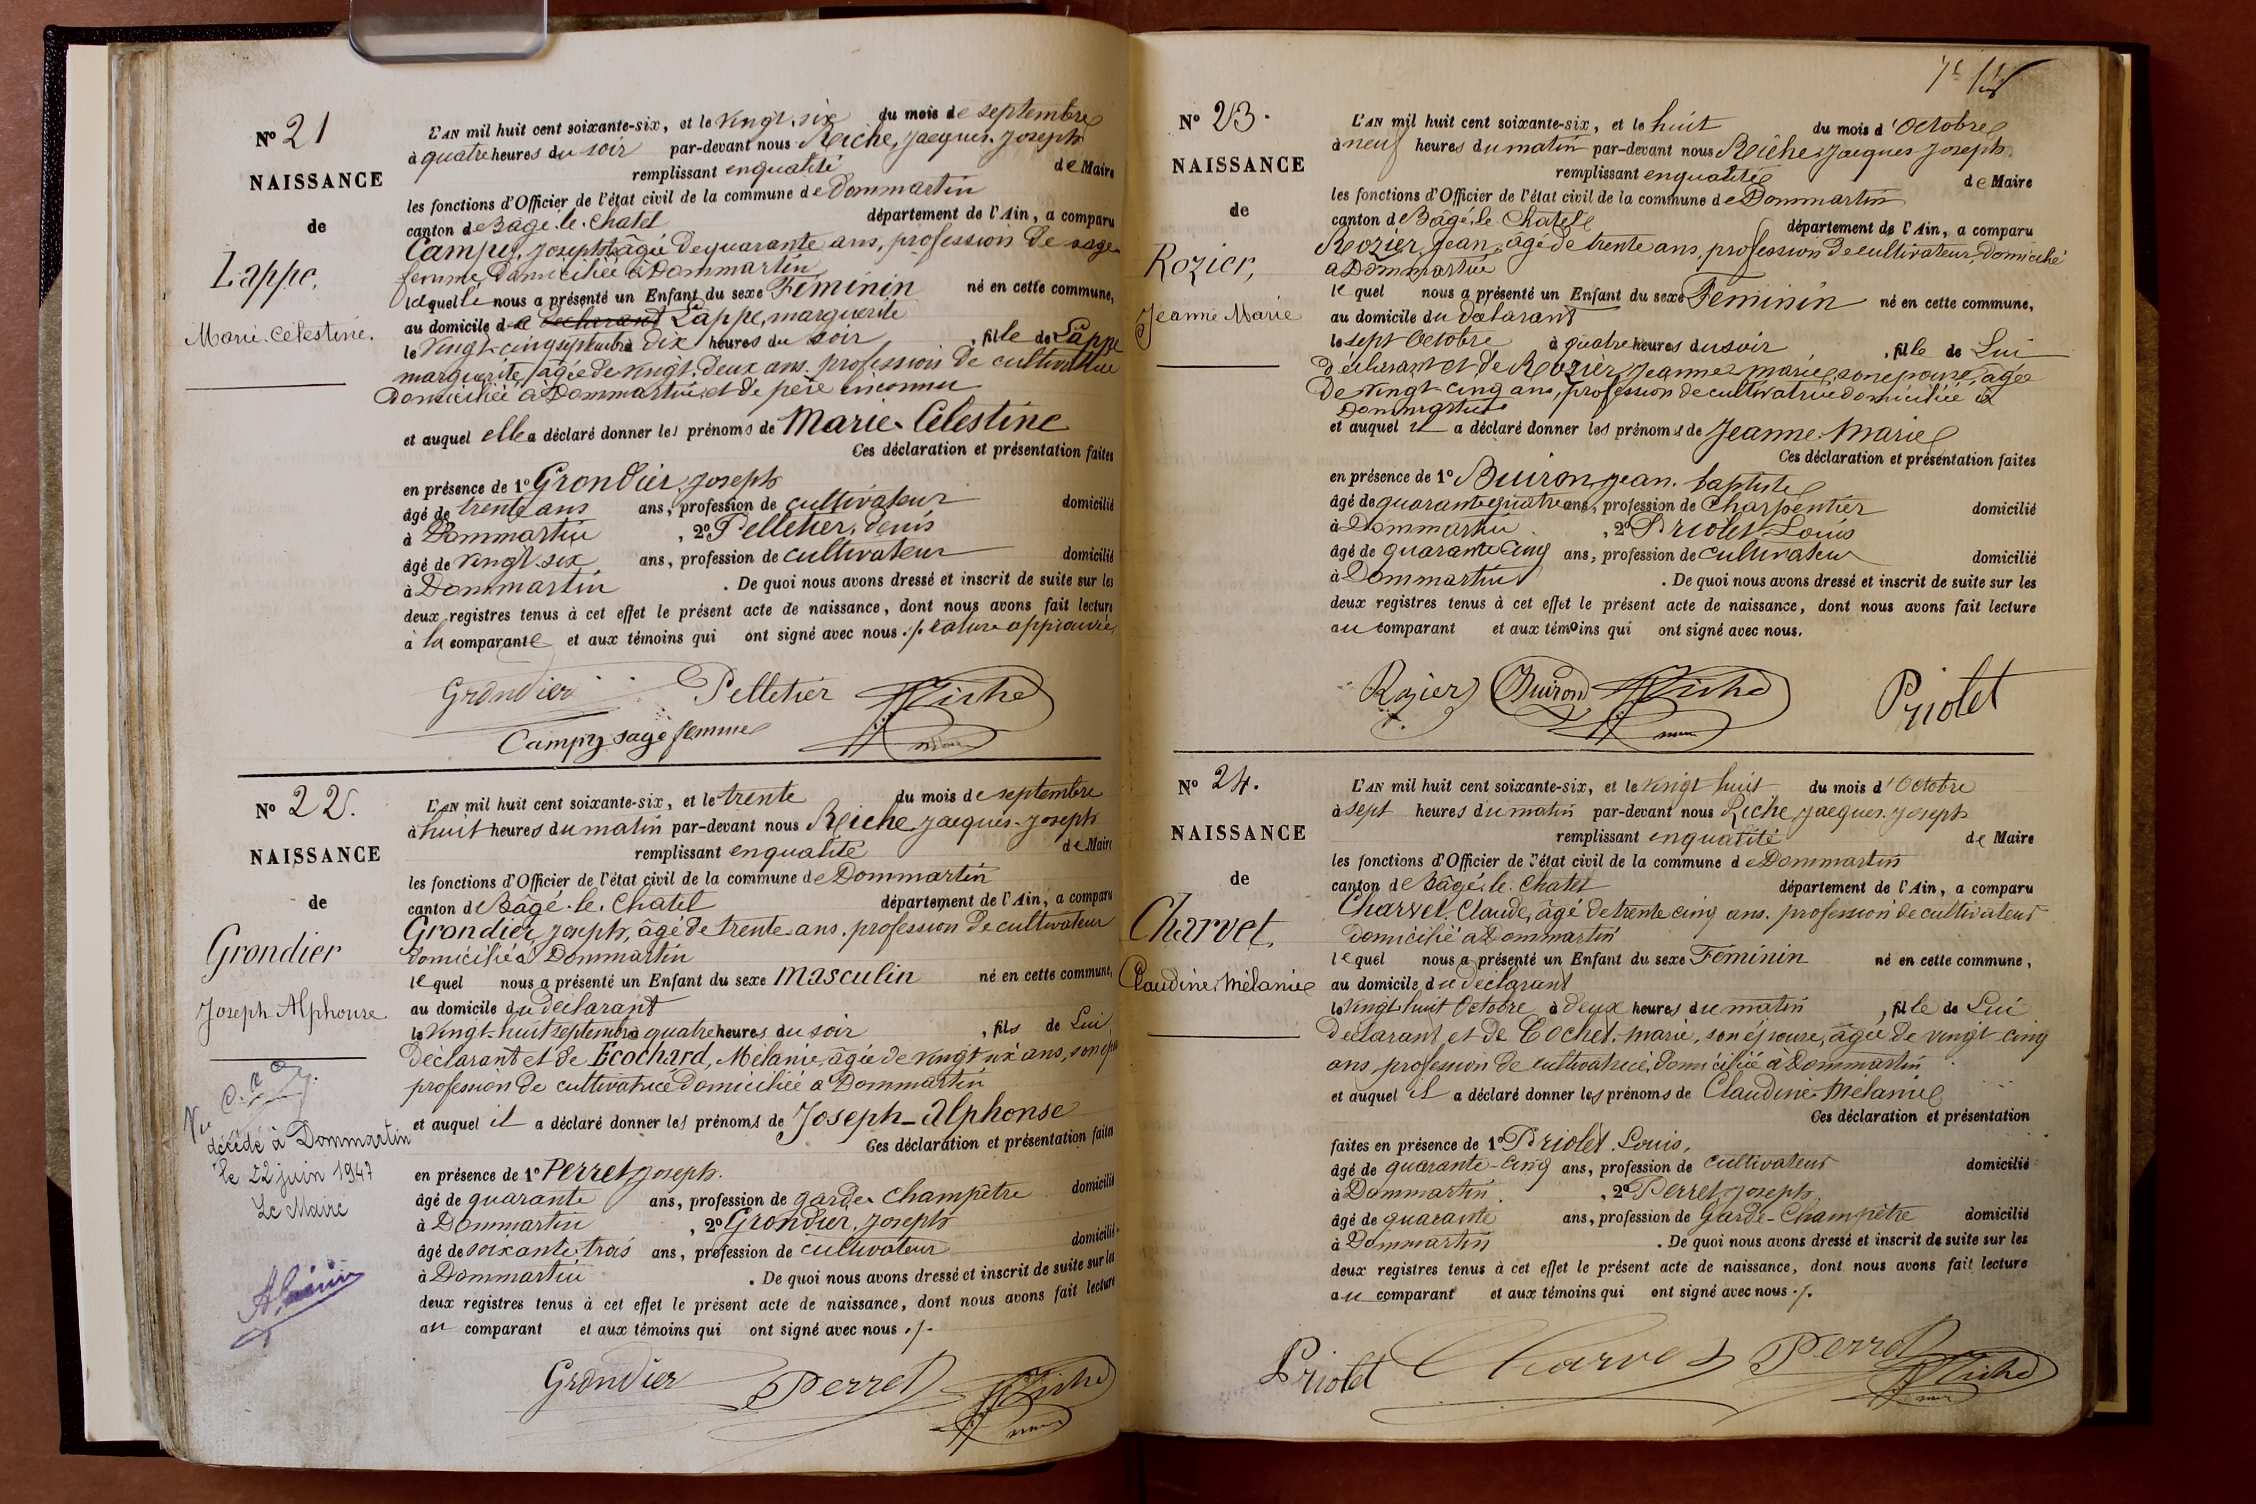 Nº 21
NAISSANCE
de
Lappe,
Marie Célestine.
L'AN mil huit cent soixante-six, et le vingt-six du mois de septembre
à quatre heures du soir par-devant nous Riche, Jacques Joseph
remplissant en qualité de Maire
les fonctions d'Officier de l'état civil de la commune de Dommartin
canton de Bâgé-le-Chatel département de l'Ain, a comparu
Campy, Josepht âgée de quarante ans, profession de sage
femme, domiciliée à Dommartin
laquelle nous a présenté un Enfant du sexe Féminin né en cette commune,
au domicile de déclarant Lappe, marguerite
le vingt-cinq septembre à dix heures du soir, fille de Lappe
marguerite, âgée de vingt-deux ans, profession de cultivatrice
domiciliée à Dommartin, et de père inconnu
et auquel elle a déclaré donner les prénoms de Marie-Célestine
Ces déclaration et présentation faites
en présence de 1º Grondier, Joseph
âgé de trente ans ans, profession de cultivateur domicilié
à Dommartin, 2º Pelletier, Denis
âgé de vingt-six ans, profession de cultivateur domicilié
à Dommartin. De quoi nous avons dressé et inscrit de suite sur les
deux registres tenus à cet effet le présent acte de naissance, dont nous avons fait lecture
à la comparante et aux témoins qui ont signé avec nous ./. rature approuvée
Grondier Pelletier Riche
Campy sage femme
Nº 22.
NAISSANCE
de
Grondier
Joseph Alphonse
Vu
décédé à Dommartin
le 22 juin 1947
Le Maire
L'AN mil huit cent soixante-six, et le trente du mois de septembre
à huit heures du matin par-devant nous Riche, Jacques-Joseph
remplissant en qualité de Maire
les fonctions d'Officier de l'état civil de la commune de Dommartin
canton de Bâgé-le-Chatel département de l'Ain, a comparu
Grondier, Joseph, âgé de trente ans, profession de cultivateur
domicilié à Dommartin
lequel nous a présenté un Enfant du sexe masculin né en cette commune,
au domicile du déclarant
le vingt-huit septembre à quatre heures du soir, fils de Lui
déclarant et de Ecochard, Mélanie, âgée de vingt six ans, son
profession de cultivatrice domiciliée à Dommartin
et auquel il a déclaré donner les prénoms de Joseph-Alphonse
Ces déclaration et présentation faites
en présence de 1º Perret, Joseph.
âgé de quarante ans, profession de garde champêtre domicilié
à Dommartin, 2º Grondier, Joseph
âgé de soixante trois ans, profession de cultivateur domicilié
à Dommartin. De quoi nous avons dressé et inscrit de suite sur les
deux registres tenus à cet effet le présent acte de naissance, dont nous avons fait lecture
au comparant et aux témoins qui ont signé avec nous ./.
Grondier Perret Riche
Nº 23.
NAISSANCE
de
Rozier,
Jeanne Marie
L'AN mil huit cent soixante-six, et le huit du mois d'Octobre
à neuf heures du matin par-devant nous Riche, Jacques Joseph
remplissant en qualité de Maire
les fonctions d'Officier de l'état civil de la commune de Dommartin
canton de Bâgé-le Chatel département de l'Ain, a comparu
Rozier, Jean, âgé de trente ans, profession de cultivateur, domicilié
à Dommartin
lequel nous a présenté un Enfant du sexe Féminin né en cette commune,
au domicile du déclarant
le sept Octobre à quatre heures du soir, fille de Lui
déclarant et de Rozier, Jeanne Marie, son épouse, âgée
de vingt-cinq ans, profession de cultivatrice domiciliée à
Dommartin
et auquel il a déclaré donner les prénoms de Jeanne-Marie
Ces déclaration et présentation faites
en présence de 1º Buiron, Jean-baptiste
âgé de quarante quatre ans, profession de Charpentier domicilié
à Dommartin, 2º Priolet Louis
âgé de quarante cinq ans, profession de cultivateur domicilié
à Dommartin. De quoi nous avons dressé et inscrit de suite sur les
deux registres tenus à cet effet le présent acte de naissance, dont nous avons fait lecture
au comparant et aux témoins qui ont signé avec nous.
Rozier Buiron Riche Priolet
Nº 24.
NAISSANCE
de
Charvet,
Claudine, Mélanie
L'AN mil huit cent soixante-six, et le vingt huit du mois d'Octobre
à sept heures du matin par-devant nous Riche, Jacques-Joseph
remplissant en qualité de Maire
les fonctions d'Officier de l'état civil de la commune de Dommartin
canton de Bâgé-le-Chatel département de l'Ain, a comparu
Charvet, Claude, âgé de trente cinq ans, profession de cultivateur
domicilié à Dommartin
lequel nous a présenté un Enfant du sexe Féminin né en cette commune,
au domicile du déclarant
le vingt-huit Octobre à deux heures du matin, fille de Lui
déclarant et de Cochet, marie, son épouse, âgée de vingt-cinq
ans, profession de cultivatrice, domiciliée à Dommartin
et auquel il a déclaré donner les prénoms de Claudine-Mélanie
Ces déclaration et présentation
faites en présence de 1º Priolet Louis,
âgé de quarante-cinq ans, profession de cultivateur domicilié
à Dommartin, 2º Perret Joseph
âgé de quarante ans, profession de Garde-Champêtre domicilié
à Dommartin. De quoi nous avons dressé et inscrit de suite sur les
deux registres tenus à cet effet le présent acte de naissance, dont nous avons fait lecture
au comparant et aux témoins qui ont signé avec nous ./.
Priolet Charvet Perret Riche